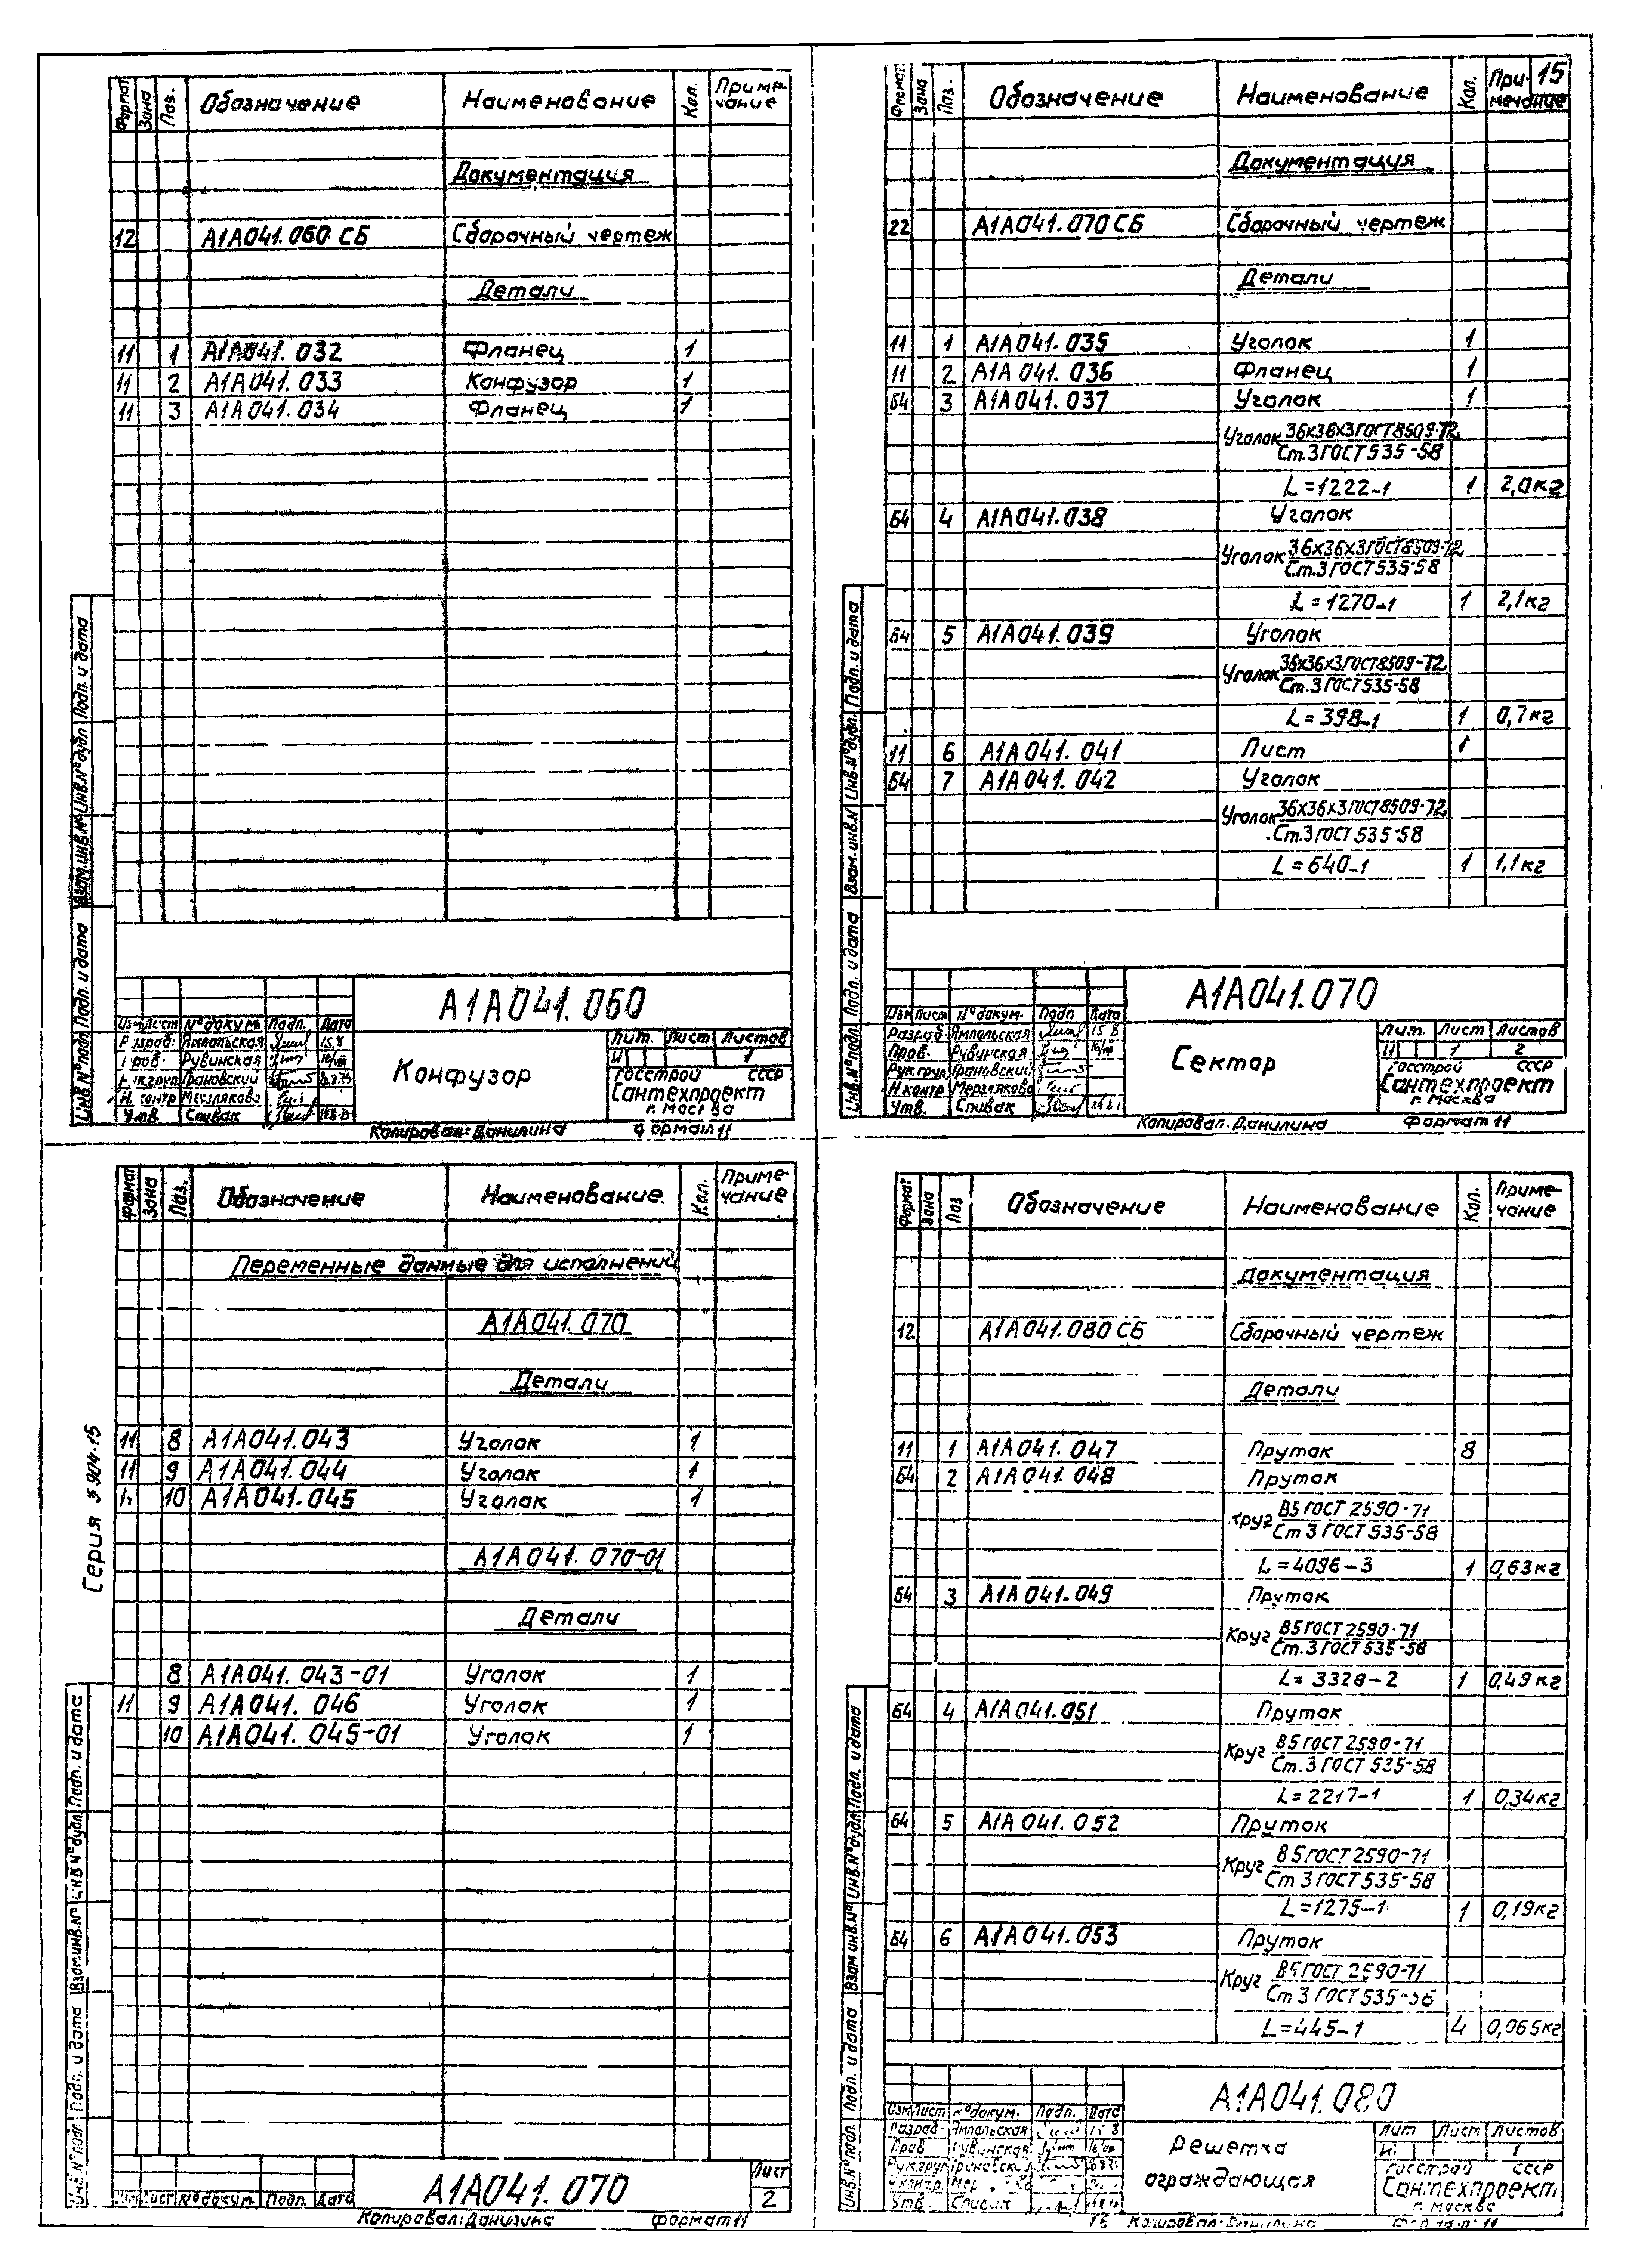 Формат Зона Поз. Обозначение Наименование Кол. Приме-
чание
Документация
12 А1А041.060 СБ Сборочный чертеж
Детали
11 1 А1А041.032 Фланец 1
11 2 А1А041.033 Конфузор 1
11 3 А1А041.034 Фланец 1
Инв.№подл. Подп. и дата Взам.инв.№ Инв.№дубл Подп. и дата
А1А041.060
Изм Лист №докум. Подп. Дата
Разраб. Ямпольская 15.8
Пров. Рубинская
Рук.груп. Грановский
Н. контр Мерзлякова
Утв. Спивак
Конфузор
Лит. Лист Листов
И 1
Госстрой СССР
Сантехпроект
г. Москва
Копировал: Данилина Формат 11
15
Формат Зона Поз. Обозначение Наименование Кол. При-
мечание
Документация
22 А1А041.070 СБ Сборочный чертеж
Детали
11 1 А1А041.035 Уголок 1
11 2 А1А041.036 Фланец 1
Б4 3 А1А041.037 Уголок 1
Уголок 36х36х3 ГОСТ 8509-72
Ст.3 ГОСТ 535-58
L=1222-1 1 2,0кг
Б4 4 А1А041.038 Уголок
Уголок 36х36х3 ГОСТ 8509-72
Ст.3 ГОСТ 535-58
L=1270-1 1 2,1кг
Б4 5 А1А041.039 Уголок
Уголок 36х36х3 ГОСТ 8509-72
Ст.3 ГОСТ 535-58
L=398-1 1 0,7кг
11 6 А1А041.041 Лист 1
Б4 7 А1А041.042 Уголок
Уголок 36х36х3 ГОСТ 8509-72
Ст.3 ГОСТ 535-58
L=640-1 1 1,1кг
Инв.№подл. Подп. и дата Взам.инв.№ Инв.№дубл. Подп. и дата
А1А041.070
Изм Лист №докум. Подп Дата
Разраб. Ямпольская 15 8
Пров. Рубинская
Рук.груп. Грановский
Н.контр Мерзлякова
Утв. Спивак
Сектор
Лит. Лист Листов
И 1 2
Госстрой СССР
Сантехпроект
г. Москва
Копировал: Данилина Формат 11
Серия 5 904-15
Формат Зона Поз. Обозначение Наименование. Кол. Приме-
чание
Переменные данные для исполнений
А1А041.070
Детали
11 8 А1А041.043 Уголок 1
11 9 А1А041.044 Уголок 1
10 А1А041.045 Уголок 1
А1А041.070-01
Детали
8 А1А041.043-01 Уголок 1
11 9 А1А041.046 Уголок 1
10 А1А041.045-01 Уголок 1
Инв.№подл. Подп. и дата Взам.инв.№ Инв.№дубл Подп. и дата
Изм Лист №докум. Подп. Дата
А1А041.070
Лист
2
Копировал: Данилина Формат 11
Формат Зона Поз Обозначение Наименование Кол. Приме-
чание
Документация
12 А1А041.080 СБ Сборочный чертеж
Детали
11 1 А1А041.047 Пруток 8
Б4 2 А1А041.048 Пруток
Круг В5 ГОСТ 2590-71
Ст 3 ГОСТ 535-58
L=4096-3 1 0,63кг
Б4 3 А1А041.049 Пруток
Круг В5 ГОСТ 2590-71
Ст.3 ГОСТ 535-58
L=3328-2 1 0,49кг
Б4 4 А1А041.051 Пруток
Круг В5 ГОСТ 2590-71
Ст.3 ГОСТ 535-58
L=2217-1 1 0,34кг
Б4 5 А1А041.052 Пруток
Круг В5 ГОСТ 2590-71
Ст 3 ГОСТ 535-58
L=1275-1 1 0,19кг
Б4 6 А1А041.053 Пруток
Круг В5 ГОСТ 2590-71
Ст 3 ГОСТ 535-58
L=445-1 4 0,065кг
Инв.№подл. Подп. и дата Взам инв.№ Инв.№дубл. Подп. и дата
А1А041.080
Изм Лист №докум. Подп. Дата
Разраб. Ямпольская 15 8
Пров. Рубинская
Рук.груп Грановский
Н.контр.
Утв. Спивак
Решетка
ограждающая
Лит Лист Листов
И 1
Госстрой СССР
Сантехпроект
г. Москва
Копировал: Данилина Формат 11